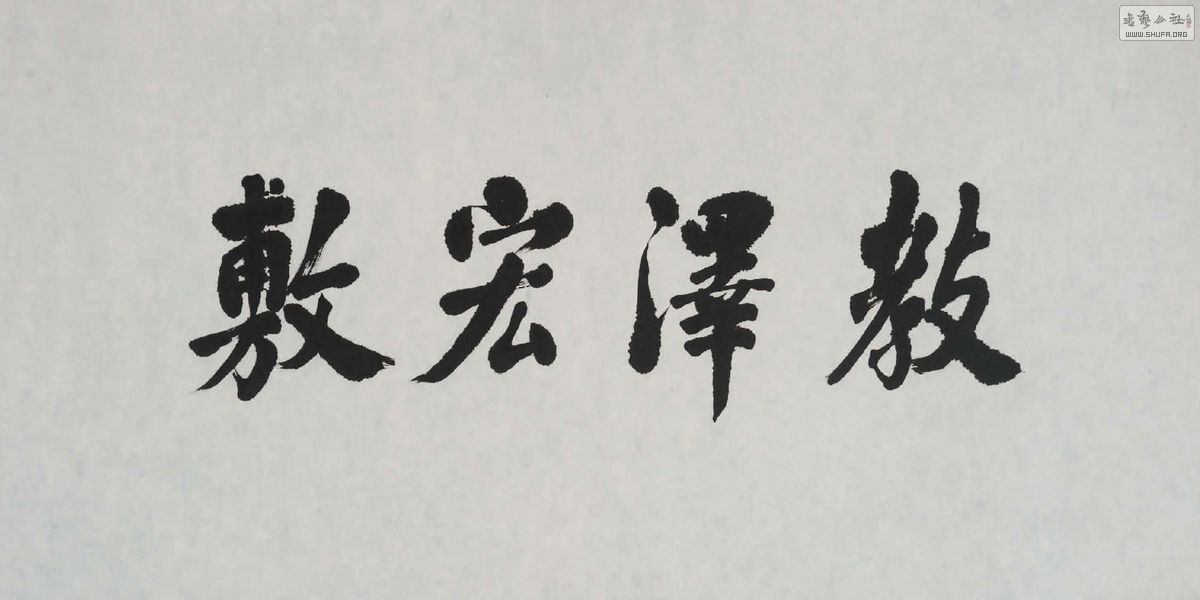 教澤宏敷
书艺公社
WWW.SHUFA.ORG